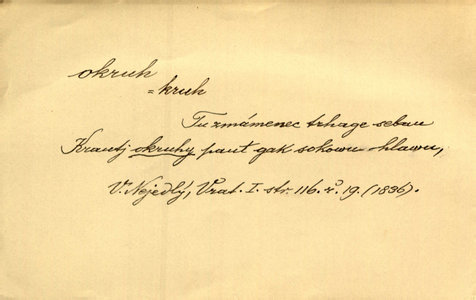 okruh
= kruh
Tu zmámenec trhage sebau
Krautj okruhy paut gak sokowu hlawu,
V. Nejedlý, Vrat. I. str. 116. ř. 19. (1836).